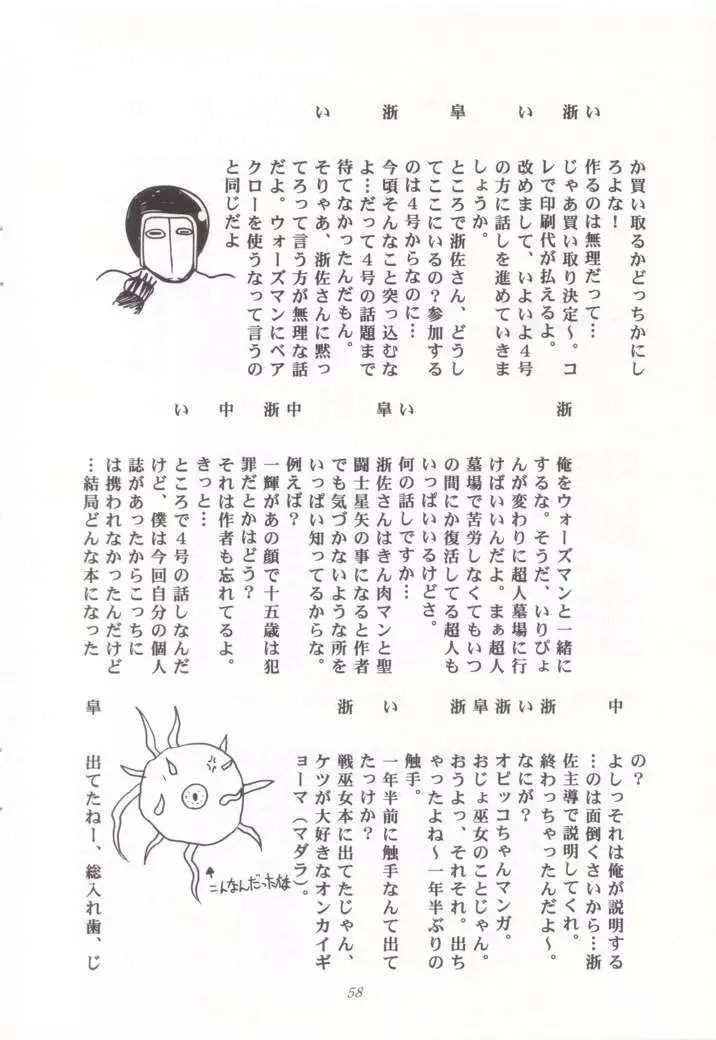 か買い取るかどっちかにし
ろよな！
い　作るのは無理だって…
浙　じゃあ買い取り決定〜。コ
レで印刷代が払えるよ。
い　改めまして、いよいよ４号
の方に話しを進めていきま
しょうか。
皐　ところで浙佐さん、どうし
てここにいるの？参加する
のは４号からなのに…
浙　今頃そんなこと突っ込むな
よ…だって４号の話題まで
待てなかったんだもん。
い　そりゃあ、浙佐さんに黙っ
てろって言う方が無理な話
だよ。ウォーズマンにベア
クローを使うなって言うの
と同じだよ
浙　俺をウォーズマンと一緒に
するな。そうだ、いりぴょ
んが変わりに超人墓場に行
けばいいんだよ。まぁ超人
墓場で苦労しなくてもいつ
の間にか復活してる超人も
いっぱいいるけどさ。
い　何の話しですか…
皐　浙佐さんはきん肉マンと聖
闘士星矢の事になると作者
でも気づかないような所を
いっぱい知ってるからな。
中　例えば？
浙　一輝があの顔で十五歳は犯
罪だとかはどう？
中　それは作者も忘れてるよ。
きっと…
い　ところで４号の話しなんだ
けど、僕は今回自分の個人
誌があったからこっちに
は携われなかったんだけど
…結局どんな本になった
の？
中　よしっそれは俺が説明する
…のは面倒くさいから…浙
佐主導で説明してくれ。
浙　終わっちゃったんだよ〜。
い　なにが？
浙　オビッコちゃんマンガ。
皐　おじょ巫女のことじゃん。
浙　おうよっ、それそれ。出ち
ゃったよね〜一年半ぶりの
触手。
い　一年半前に触手なんて出て
たっけか？
浙　戦巫女本に出てたじゃん、
ケツが大好きなオンカイギ
ョーマ（マダラ）。
↑こんなんだったかな
皐　出てたねー、総入れ歯、じ
58